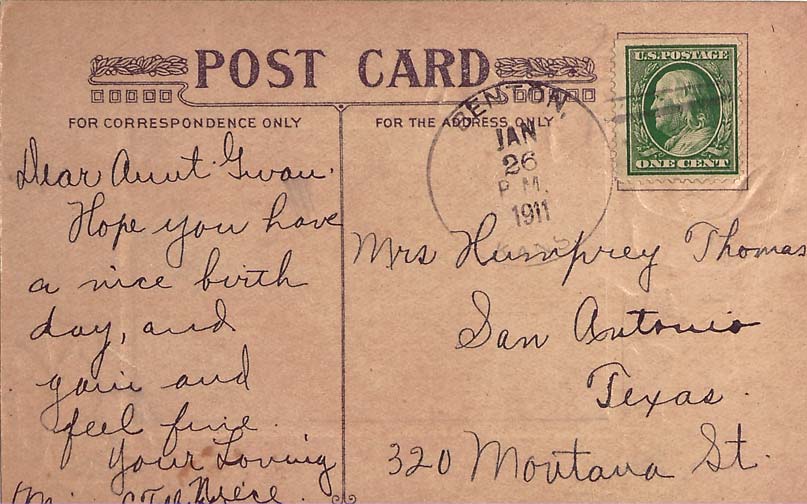 POST CARD
FOR CORRESPONDENCE ONLY
FOR THE ADDRESS ONLY
U.S. POSTAGE
ONE CENT
BENTON,
JAN
26
P.M.
1911
KANS
Dear Aunt Gwan.
Hope you have
a nice birth
day, and
gain and
feel fine.
Your Loving
Niece.
Mrs Humprey Thomas
San Antonio
Texas.
320 Montana St.